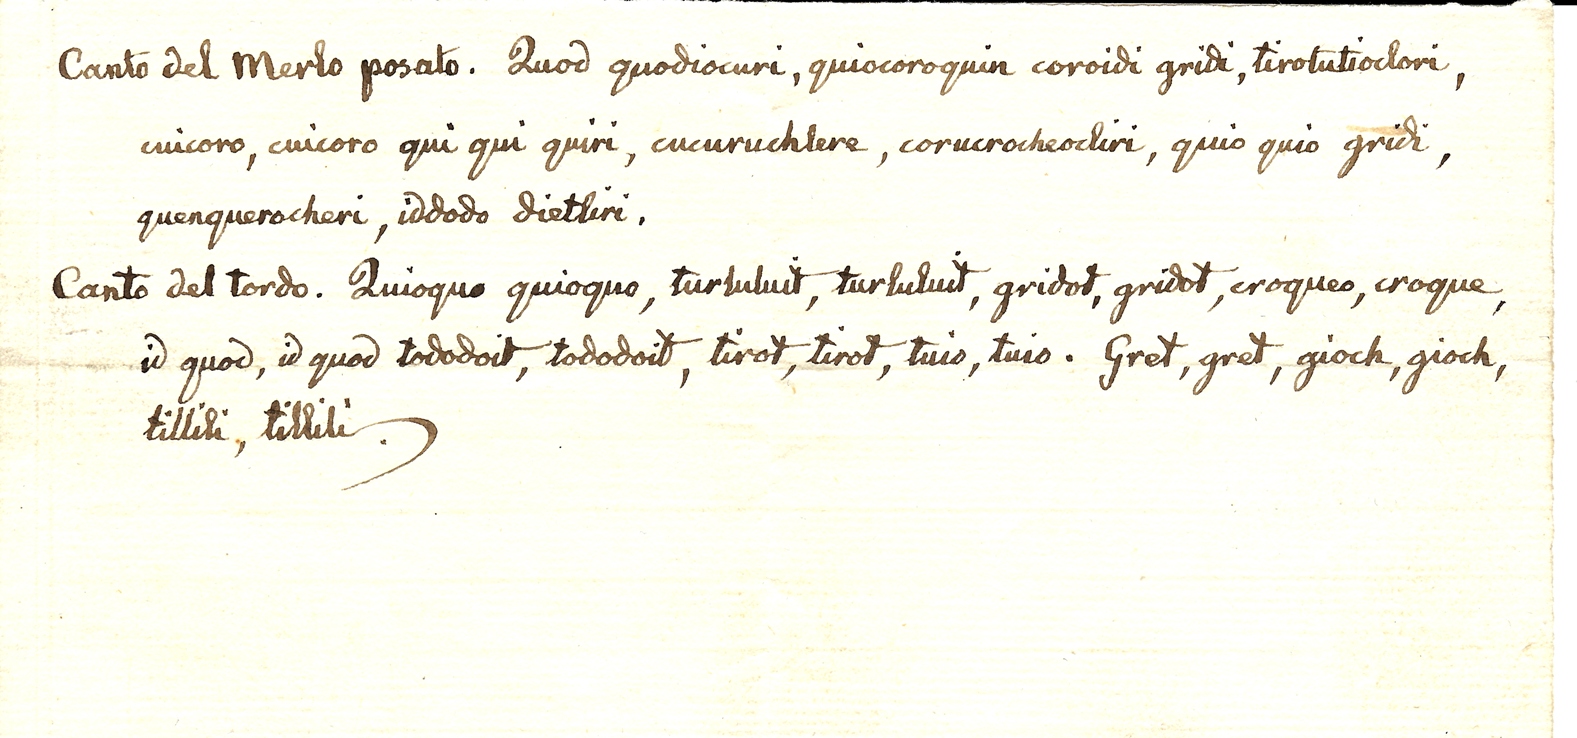 Canto del Merlo posato. Quod quodiocuri, quiocoroquin coroidi gridi, tirotutioclori,
cuicoro, cuicoro qui qui quiri, cucuruchlere, corucrocheocliri, quio quio gridi,
quenquerocheri, iddodo dietliri.
Canto del tordo. Quioquo quioquo, turluluit, turluluit, gridot, gridot, croqueo, croque,
id quod, id quod tododoit, tododoit, tirot, tirot, tuio, tuio. Gret, gret, gioch, gioch,
tillili, tillili.